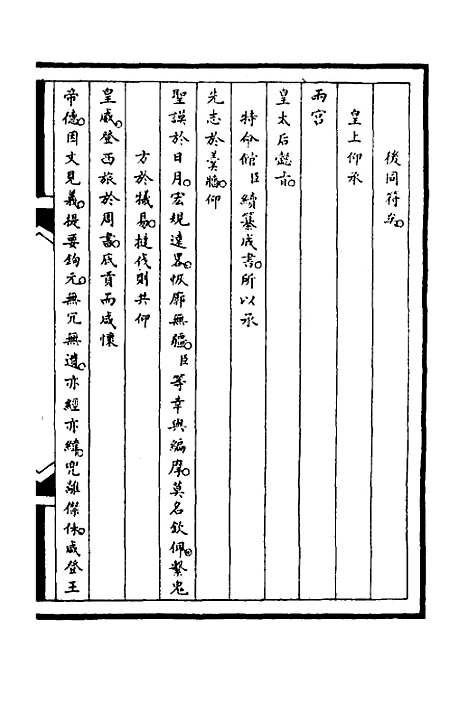 後同符矣
皇上仰承
兩宮
皇太后懿旨
特命館臣續纂成書所以承
先志於羹牆仰
聖謨於日月宏規達畧恢廓無疆臣等幸與編摩莫名欽佩繫鬼
方於犧易撻伐則共仰
皇威登西旅於周書底貢而咸懷
帝德因文見義提要鈎元無冗無遺亦經亦緯兜離傑佅咸登王